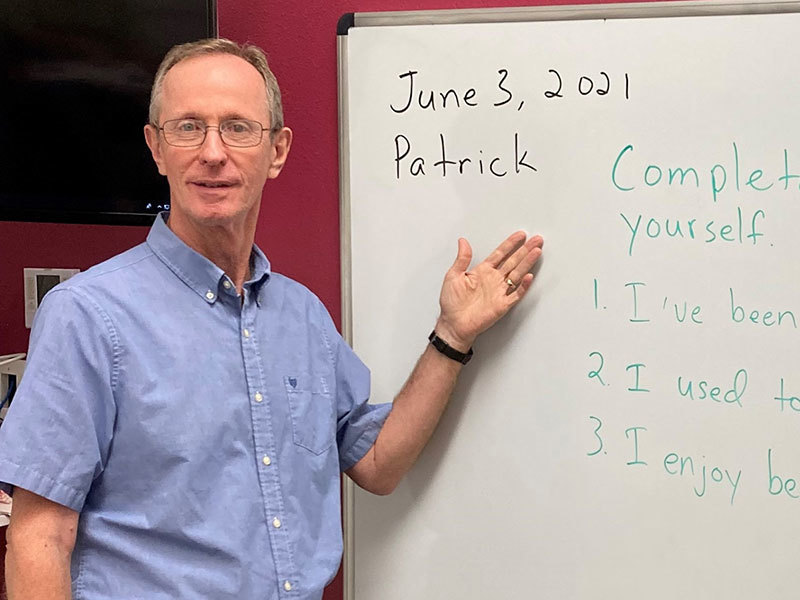 June 3, 2021
Patrick
Complet
yourself.
1. I've been
2. I used to
3. I enjoy be